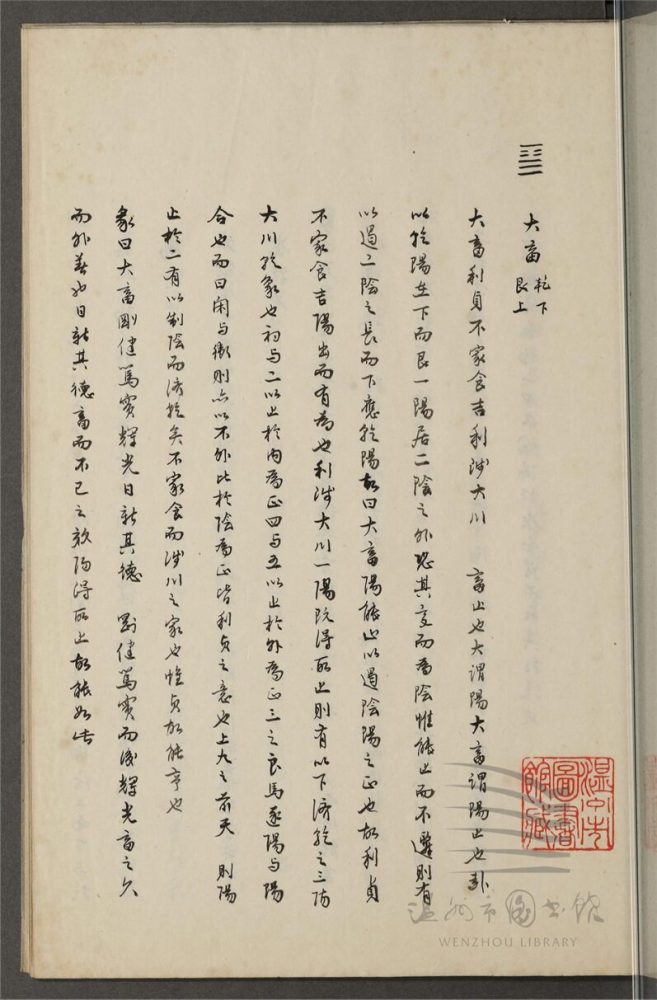 大畜 乾下艮上
大畜利貞不家食吉利涉大川 畜止也大謂陽大畜謂陽止也卦
以乾陽在下而艮一陽居二陰之外恐其變而為陰惟能止而不遷則有
以遏二陰之長而下應乾陽故曰大畜陽能止以遏陰陽之正也故利貞
不家食吉陽出而有為也利涉大川一陽既得所止則有以下濟乾之三陽
大川乾象也初与二以止於內為正四与五以止於外為正三之良馬逐陽与陽
合也而曰閑与衛則亦以不外比於陰為正皆利貞之意也上九之 天 則陽
止於二有以制陰而濟乾矣不家食而涉川之 也惟貞故能亨也
彖曰大畜剛健篤實輝光日新其德 剛健篤實而後輝光畜之久
而外著也日新其德畜而不已之效陽得所止故能如此
溫州市圖書館藏
温州市图书馆
WENZHOU LIBRARY